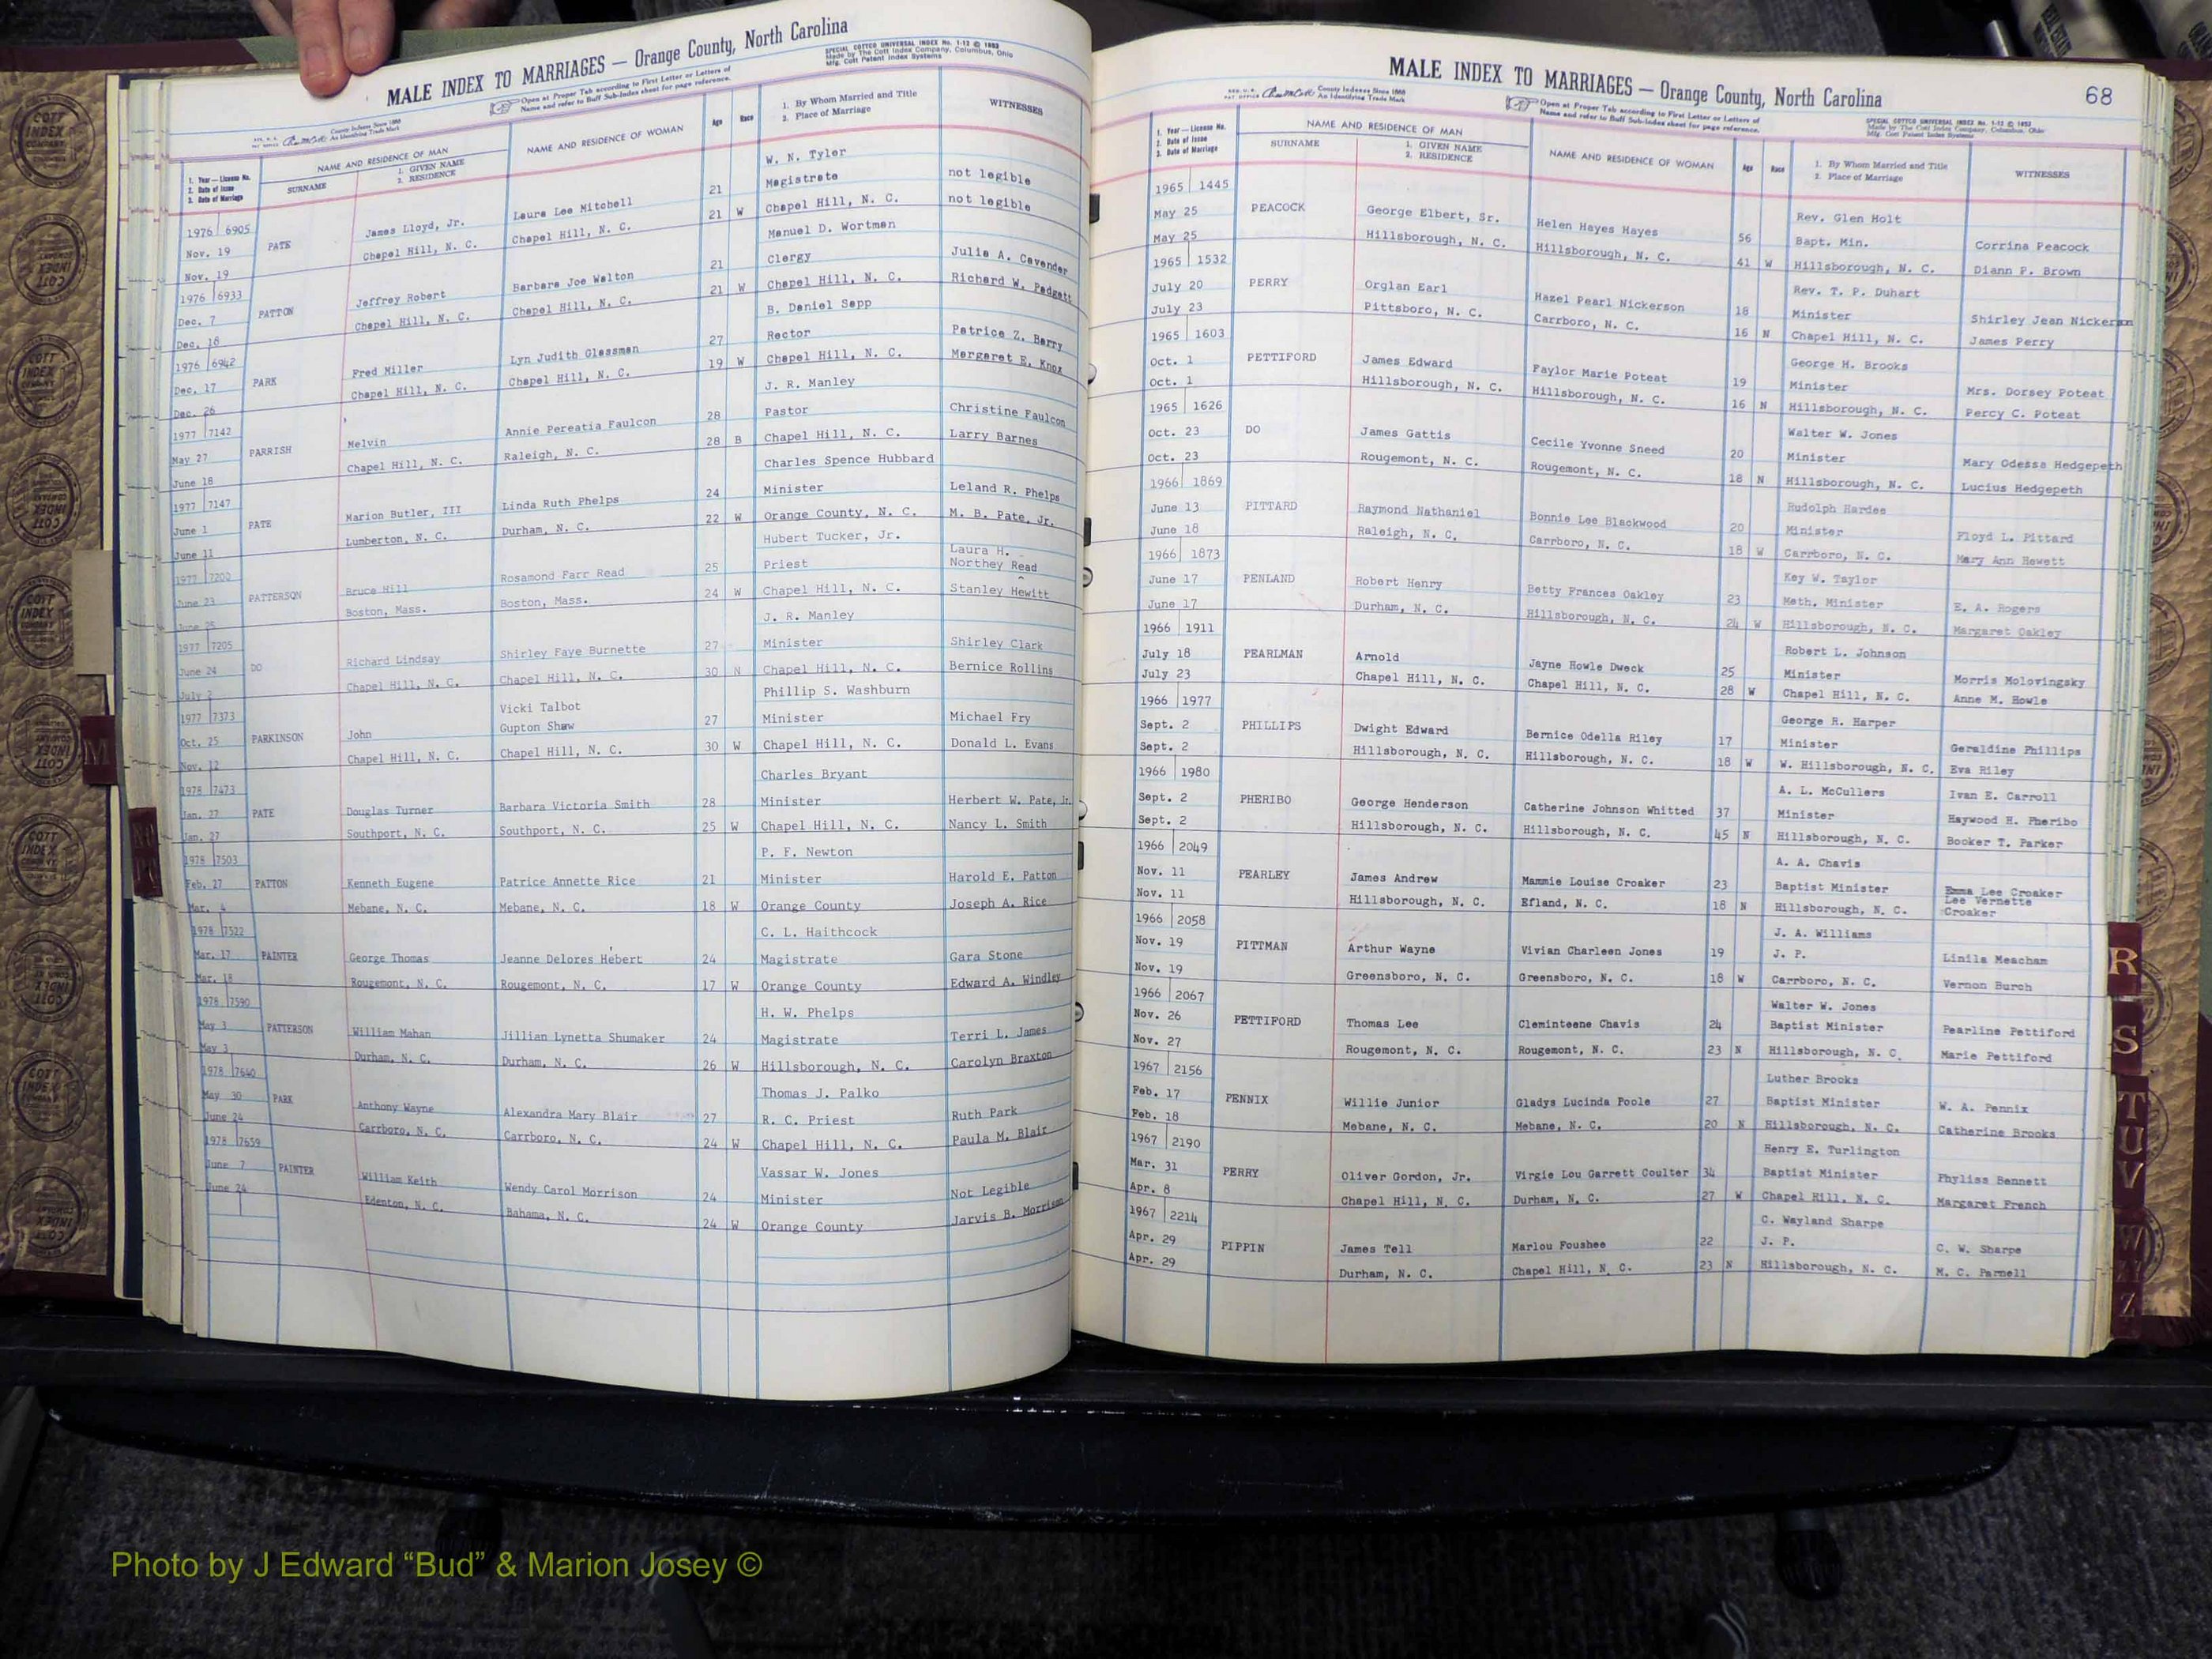 MALE INDEX TO MARRIAGES — Orange County, North Carolina
SPECIAL COTTCO UNIVERSAL INDEX No. 1-12 © 1953
Made by The Cott Index Company, Columbus, Ohio
Mfg. Cott Patent Index Systems
Open at Proper Tab according to First Letter or Letters of
Name and refer to Buff Sub-Index sheet for page reference.
County Indexes Since 1888
An Identifying Trade Mark
1. Year — License No.
2. Date of Issue
3. Date of Marriage
NAME AND RESIDENCE OF MAN
SURNAME
1. GIVEN NAME
2. RESIDENCE
NAME AND RESIDENCE OF WOMAN
Age
Race
1. By Whom Married and Title
2. Place of Marriage
WITNESSES
W. N. Tyler
1976 6905 James Lloyd, Jr. Laura Lee Mitchell 21 Magistrate not legible
Nov. 19 PATE Chapel Hill, N. C. Chapel Hill, N. C. 21 W Chapel Hill, N. C. not legible
Nov. 19 Manuel D. Wortman
1976 6933 Jeffrey Robert Barbara Joe Walton 21 Clergy Julie A. Cavender
Dec. 7 PATTON Chapel Hill, N. C. Chapel Hill, N. C. 21 W Chapel Hill, N. C. Richard W. Padgett
Dec. 18 B. Daniel Sapp
1976 6942 Fred Miller Lyn Judith Glassman 27 Rector Patrice Z. Barry
Dec. 17 PARK Chapel Hill, N. C. Chapel Hill, N. C. 19 W Chapel Hill, N. C. Margaret E. Knox
Dec. 26 J. R. Manley
1977 7142 Melvin Annie Pereatia Faulcon 28 Pastor Christine Faulcon
May 27 PARRISH Chapel Hill, N. C. Raleigh, N. C. 28 B Chapel Hill, N. C. Larry Barnes
June 18 Charles Spence Hubbard
1977 7147 Marion Butler, III Linda Ruth Phelps 24 Minister Leland R. Phelps
June 1 PATE Lumberton, N. C. Durham, N. C. 22 W Orange County, N. C. M. B. Pate, Jr.
June 11 Hubert Tucker, Jr. Laura H.
1977 7200 Bruce Hill Rosamond Farr Read 25 Priest Northey Read
June 23 PATTERSON Boston, Mass. Boston, Mass. 24 W Chapel Hill, N. C. Stanley Hewitt
June 25 J. R. Manley
1977 7205 Richard Lindsay Shirley Faye Burnette 27 Minister Shirley Clark
June 24 DO Chapel Hill, N. C. Chapel Hill, N. C. 30 N Chapel Hill, N. C. Bernice Rollins
July 2 Vicki Talbot Phillip S. Washburn
1977 7373 John Gupton Shaw 27 Minister Michael Fry
Oct. 25 PARKINSON Chapel Hill, N. C. Chapel Hill, N. C. 30 W Chapel Hill, N. C. Donald L. Evans
Nov. 12 Charles Bryant
1978 7473 Douglas Turner Barbara Victoria Smith 28 Minister Herbert W. Pate, Jr.
Jan. 27 PATE Southport, N. C. Southport, N. C. 25 W Chapel Hill, N. C. Nancy L. Smith
Jan. 27 P. F. Newton
1978 7503 Kenneth Eugene Patrice Annette Rice 21 Minister Harold E. Patton
Feb. 27 PATTON Mebane, N. C. Mebane, N. C. 18 W Orange County Joseph A. Rice
Mar. 4 C. L. Haithcock
1978 7522 George Thomas Jeanne Delores Hebert 24 Magistrate Gara Stone
Mar. 17 PAINTER Rougemont, N. C. Rougemont, N. C. 17 W Orange County Edward A. Windley
Mar. 18 H. W. Phelps
1978 7590 William Mahan Jillian Lynetta Shumaker 24 Magistrate Terri L. James
May 3 PATTERSON Durham, N. C. Durham, N. C. 26 W Hillsborough, N. C. Carolyn Braxton
May 3 Thomas J. Palko
1978 7640 Anthony Wayne Alexandra Mary Blair 27 R. C. Priest Ruth Park
May 30 PARK Carrboro, N. C. Carrboro, N. C. 24 W Chapel Hill, N. C. Paula M. Blair
June 24 Vassar W. Jones
1978 7659 William Keith Wendy Carol Morrison 24 Minister Not Legible
June 7 PAINTER Edenton, N. C. Bahama, N. C. 24 W Orange County Jarvis B. Morrison
June 24
MALE INDEX TO MARRIAGES — Orange County, North Carolina 68
County Indexes Since 1888
An Identifying Trade Mark
Open at Proper Tab according to First Letter or Letters of
Name and refer to Buff Sub-Index sheet for page reference.
SPECIAL COTTCO UNIVERSAL INDEX No. 1-12 © 1953
Made by The Cott Index Company, Columbus, Ohio
Mfg. Cott Patent Index Systems
1. Year — License No.
2. Date of Issue
3. Date of Marriage
NAME AND RESIDENCE OF MAN
SURNAME
1. GIVEN NAME
2. RESIDENCE
NAME AND RESIDENCE OF WOMAN
Age
Race
1. By Whom Married and Title
2. Place of Marriage
WITNESSES
1965 1445 Rev. Glen Holt
May 25 PEACOCK George Elbert, Sr. Helen Hayes Hayes 56 Bapt. Min. Corrina Peacock
May 25 Hillsborough, N. C. Hillsborough, N. C. 41 W Hillsborough, N. C. Diann P. Brown
1965 1532 Rev. T. P. Duhart
July 20 PERRY Orglan Earl Hazel Pearl Nickerson 18 Minister Shirley Jean Nickerson
July 23 Pittsboro, N. C. Carrboro, N. C. 16 N Chapel Hill, N. C. James Perry
1965 1603 George H. Brooks
Oct. 1 PETTIFORD James Edward Faylor Marie Poteat 19 Minister Mrs. Dorsey Poteat
Oct. 1 Hillsborough, N. C. Hillsborough, N. C. 16 N Hillsborough, N. C. Percy C. Poteat
1965 1626 Walter W. Jones
Oct. 23 DO James Gattis Cecile Yvonne Sneed 20 Minister Mary Odessa Hedgepeth
Oct. 23 Rougemont, N. C. Rougemont, N. C. 18 N Hillsborough, N. C. Lucius Hedgepeth
1966 1869 Rudolph Hardee
June 13 PITTARD Raymond Nathaniel Bonnie Lee Blackwood 20 Minister Floyd L. Pittard
June 18 Raleigh, N. C. Carrboro, N. C. 18 W Carrboro, N. C. Mary Ann Hewett
1966 1873 Key W. Taylor
June 17 PENLAND Robert Henry Betty Frances Oakley 23 Meth. Minister E. A. Rogers
June 17 Durham, N. C. Hillsborough, N. C. 24 W Hillsborough, N. C. Margaret Oakley
1966 1911 Robert L. Johnson
July 18 PEARLMAN Arnold Jayne Howle Dweck 25 Minister Morris Molovingsky
July 23 Chapel Hill, N. C. Chapel Hill, N. C. 28 W Chapel Hill, N. C. Anne M. Howle
1966 1977 George R. Harper
Sept. 2 PHILLIPS Dwight Edward Bernice Odella Riley 17 Minister Geraldine Phillips
Sept. 2 Hillsborough, N. C. Hillsborough, N. C. 18 W W. Hillsborough, N. C. Eva Riley
1966 1980 A. L. McCullers Ivan E. Carroll
Sept. 2 PHERIBO George Henderson Catherine Johnson Whitted 37 Minister Haywood H. Pheribo
Sept. 2 Hillsborough, N. C. Hillsborough, N. C. 45 N Hillsborough, N. C. Booker T. Parker
1966 2049 A. A. Chavis
Nov. 11 PEARLEY James Andrew Mammie Louise Croaker 23 Baptist Minister Emma Lee Croaker
Nov. 11 Hillsborough, N. C. Efland, N. C. 18 N Hillsborough, N. C. Lee Vernette
Croaker
1966 2058 J. A. Williams
Nov. 19 PITTMAN Arthur Wayne Vivian Charleen Jones 19 J. P. Linila Meacham
Nov. 19 Greensboro, N. C. Greensboro, N. C. 18 W Carrboro, N. C. Vernon Burch
1966 2067 Walter W. Jones
Nov. 26 PETTIFORD Thomas Lee Cleminteene Chavis 24 Baptist Minister Pearline Pettiford
Nov. 27 Rougemont, N. C. Rougemont, N. C. 23 N Hillsborough, N. C. Marie Pettiford
1967 2156 Luther Brooks
Feb. 17 PENNIX Willie Junior Gladys Lucinda Poole 27 Baptist Minister W. A. Pennix
Feb. 18 Mebane, N. C. Mebane, N. C. 20 N Hillsborough, N. C. Catherine Brooks
1967 2190 Henry E. Turlington
Mar. 31 PERRY Oliver Gordon, Jr. Virgie Lou Garrett Coulter 34 Baptist Minister Phyliss Bennett
Apr. 8 Chapel Hill, N. C. Durham, N. C. 27 W Chapel Hill, N. C. Margaret French
1967 2214 C. Wayland Sharpe
Apr. 29 PIPPIN James Tell Marlou Foushee 22 J. P. C. W. Sharpe
Apr. 29 Durham, N. C. Chapel Hill, N. C. 23 N Hillsborough, N. C. M. C. Parnell
M
R
S
T
U
V
W
Z
COTT INDEX COMPANY
Photo by J Edward “Bud” & Marion Josey ©